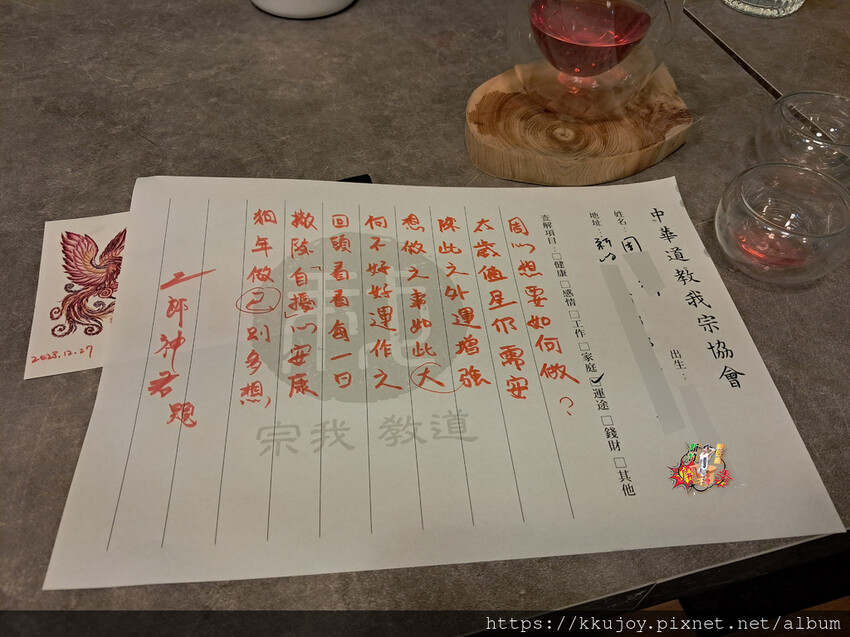 中華道教我宗協會
姓名：周
出生：
地址：新
查解項目：□健康□感情□工作□家庭☑運途□錢財□其他
周心想要如何做？
太歲值星仍需安
除此之外運增強
想做之事如此大
何不好好運作之
回頭看看每一日
撤除「自擾」心安康
狗年做己別多想，
二郎神君 題
道教我宗
https://kkujoy.pixnet.net/album